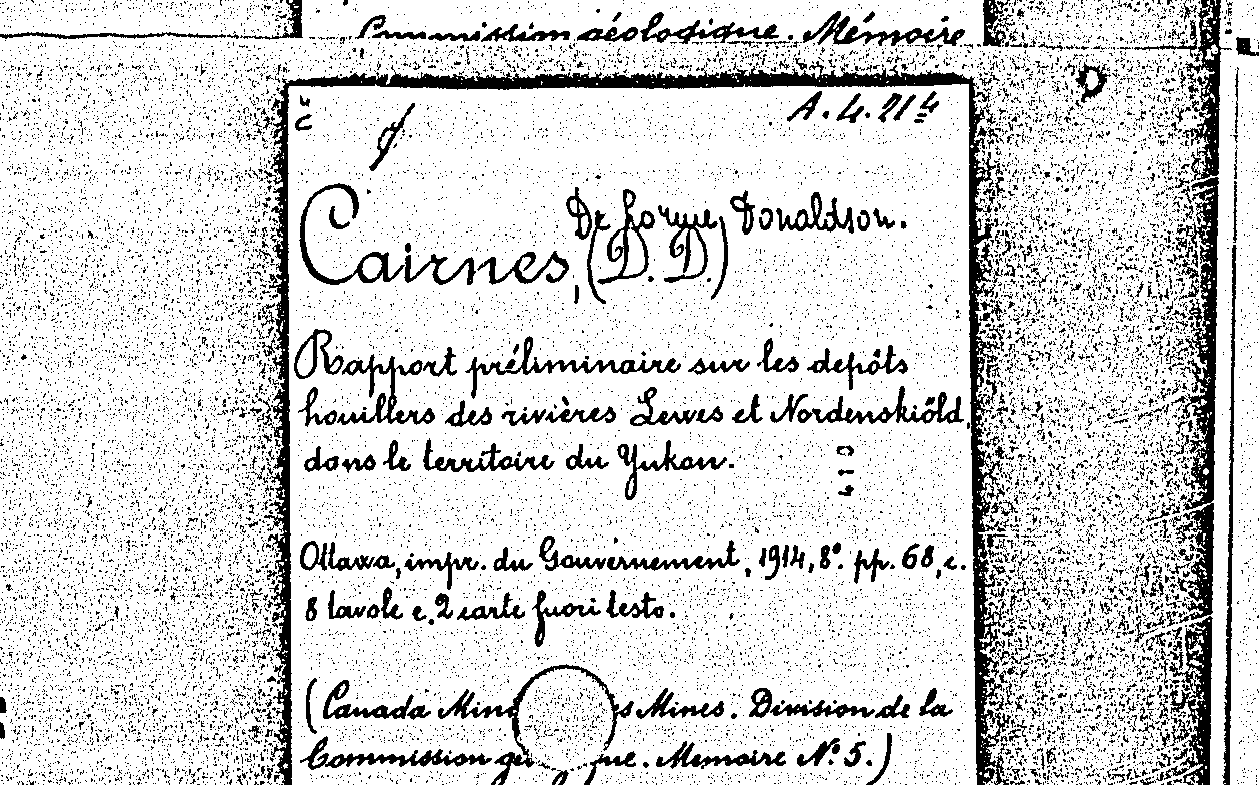 Commission géologique. Mémoire
A. 4. 21 4
Dr Lorne Donaldson.
Cairnes, (D. D.)
Rapport préliminaire sur les depôts
houillers des rivières Lewes et Nordenskiöld,
dans le territoire du Yukon.
Ottawa, impr. du Gouvernement, 1914, 8º. pp. 68, c.
8 tavole e 2 carte fuori testo.
(Canada Mines Mines. Division de la
Commission gé que. Memoire Nº 5.)